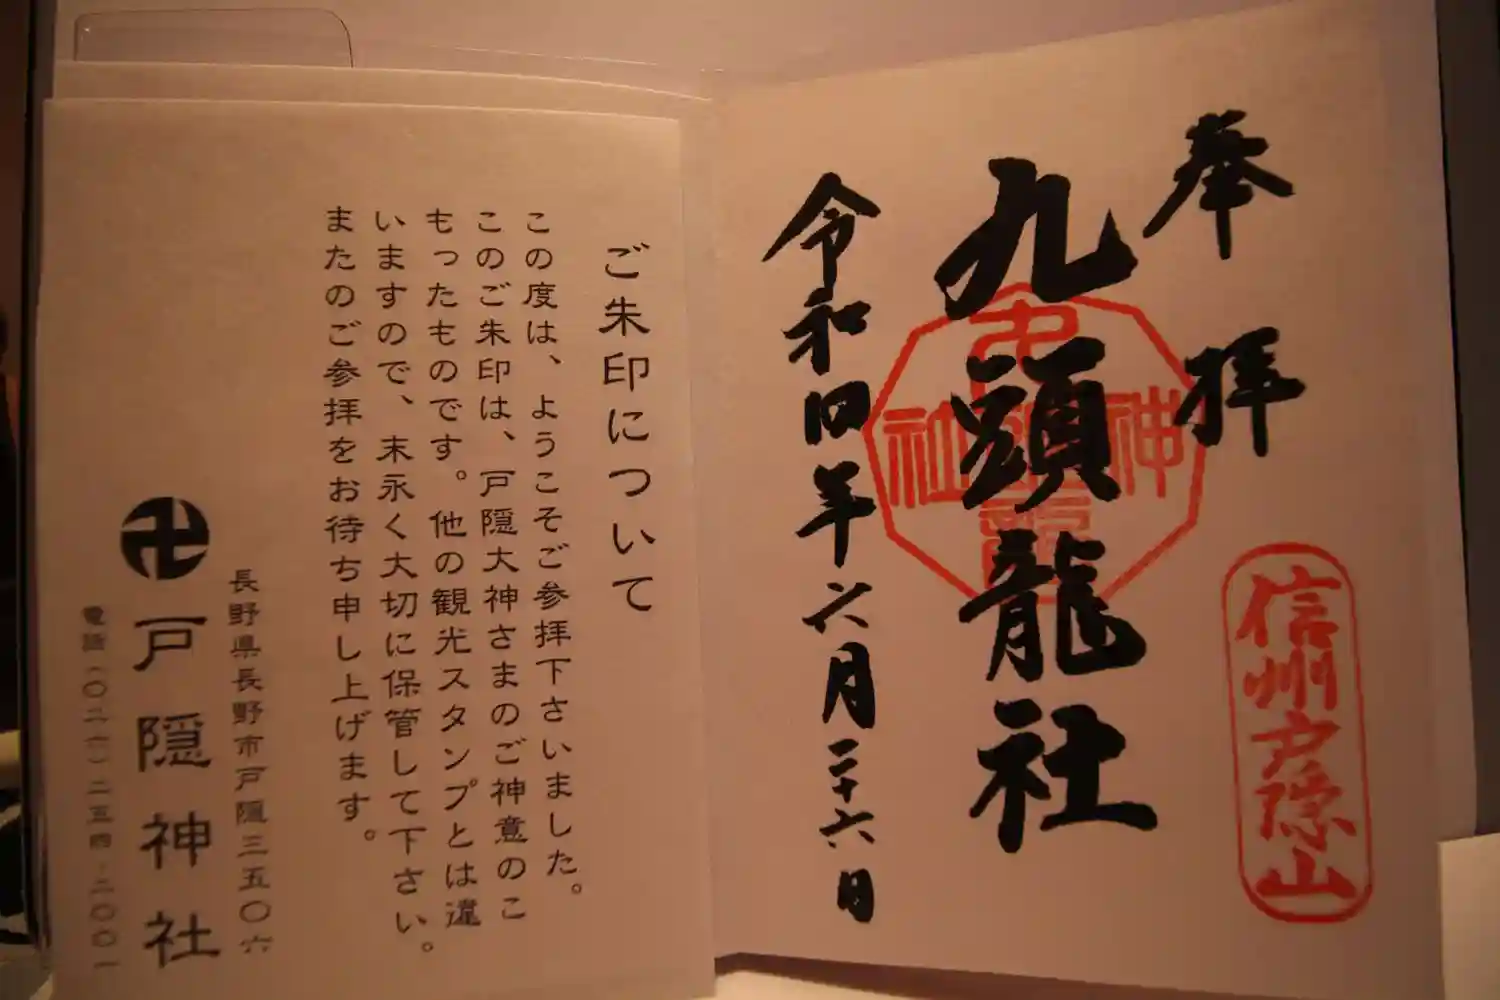 奉拝
九頭龍社
令和四年六月二十六日
信州戸隠山
神
社
ご朱印について
この度は、ようこそご参拝下さいました。
このご朱印は、戸隠大神さまのご神意のこ
もったものです。他の観光スタンプとは違
いますので、末永く大切に保管して下さい。
またのご参拝をお待ち申し上げます。
長野県長野市戸隠三五〇六
卍戸隠神社
電話(〇二六)二五四-二〇〇一